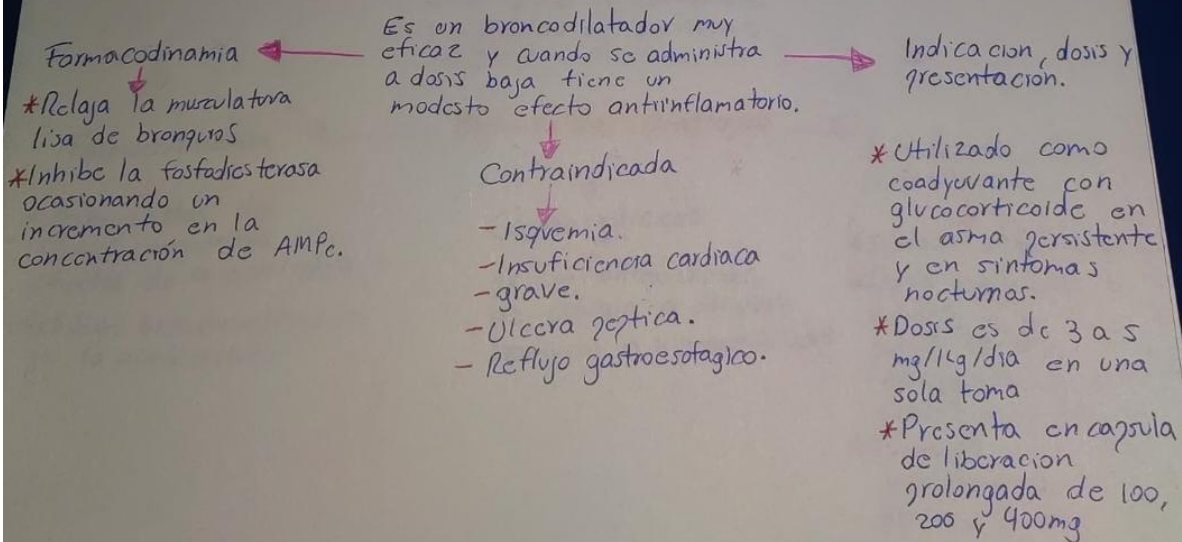 Es un broncodilatador muy
eficaz y cuando se administra
a dosis baja tiene un
modesto efecto antiinflamatorio.
Farmacodinamia
*Relaja la musculatura
lisa de bronquios
*Inhibe la fosfadiesterasa
ocasionando un
incremento en la
concentración de AMPc.
Contraindicada
- Isquemia.
- Insuficiencia cardiaca
- grave.
- Ulcera peptica.
- Reflujo gastroesofagico.
Indicacion, dosis y
presentación.
* Utilizado como
coadyuvante con
glucocorticoide en
el asma persistente
y en sintomas
nocturnas.
* Dosis es de 3 a 5
mg/kg/dia en una
sola toma
* Presenta en capsula
de liberacion
prolongada de 100,
200 y 400mg